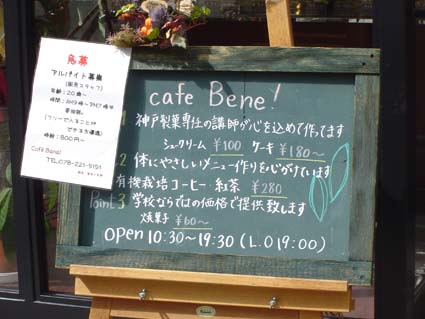 急募
アルバイト募集
(販売スタッフ)
年齢：20歳〜
時間：AM9時〜PM7時半
要相談。
時給：800円〜
Café Bene!
TEL:078-221-5151
cafe Bene!
1 神戸製菓専任の講師が心を込めて作ってます
シュークリーム ¥100 ケーキ ¥180〜
2 体にやさしいメニュー作りを心がけています
有機栽培コーヒー・紅茶 ¥280
Point 3 学校ならではの価格で提供致します
焼菓子 ¥60〜
open 10:30~19:30 (L.O 19:00)